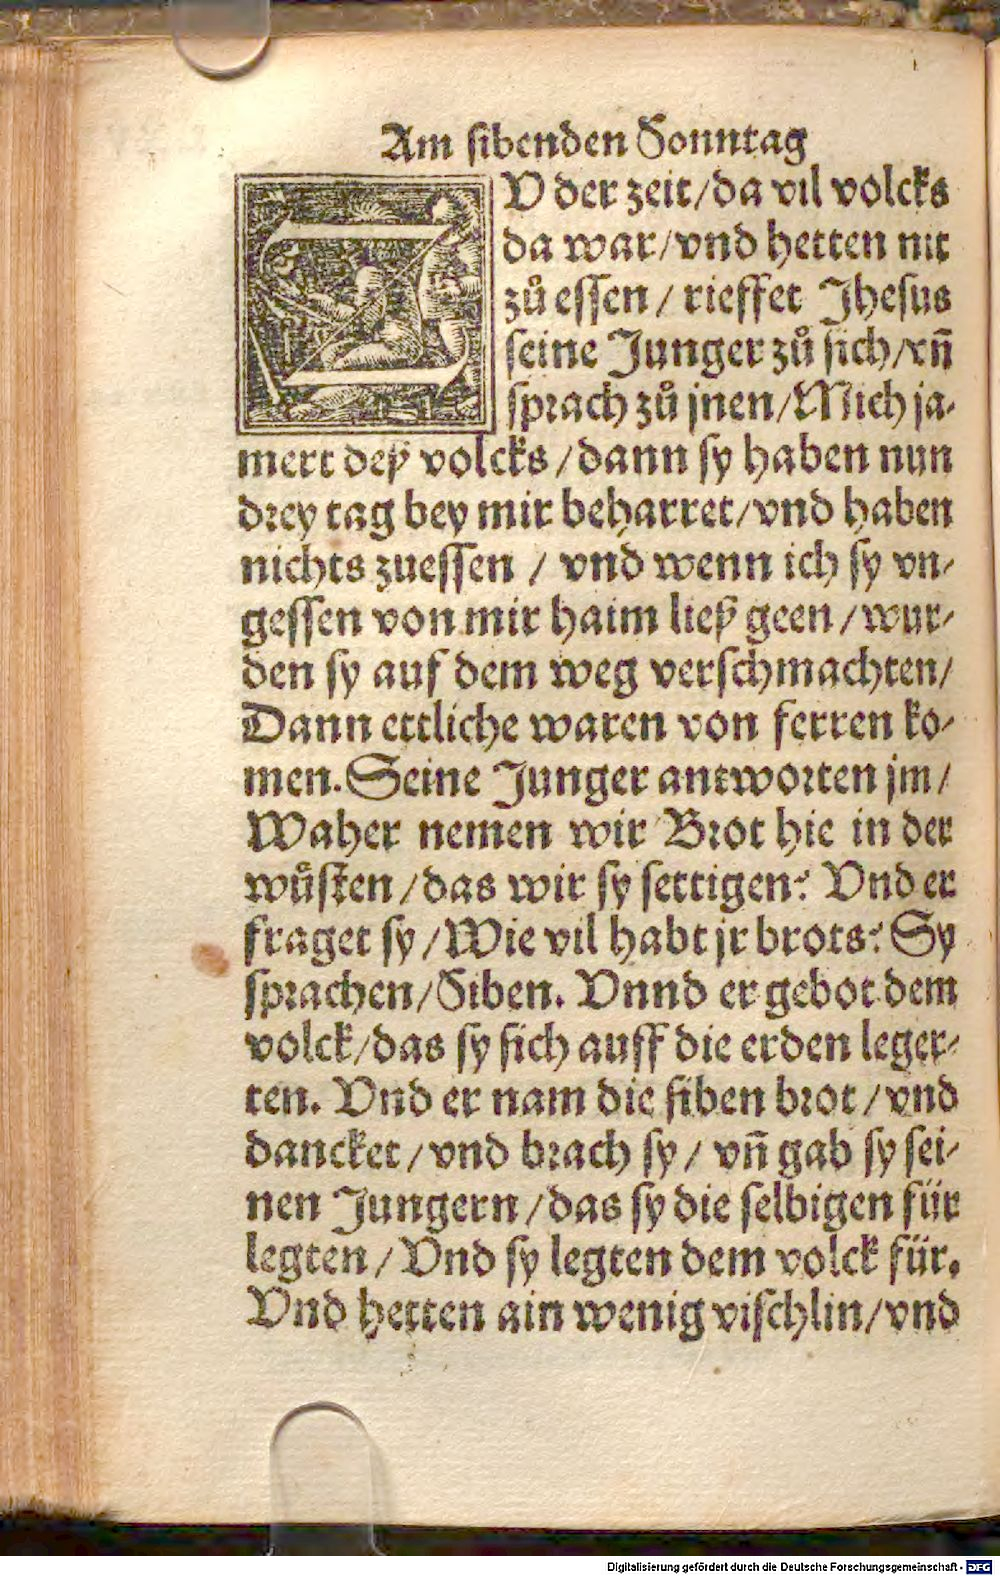 Am sibenden Sonntag
ZV der zeit/da vil volcks
da war/vnd hetten nit
zů essen / rieffet Jhesus
seine Junger zů sich/vñ
sprach zů jnen/Mich ja-
mert deß volcks/dann sy haben nun
drey tag bey mir beharret/vnd haben
nichts zuessen / vnd wenn ich sy vn-
gessen von mir haim ließ geen/wur-
den sy auf dem weg verschmachten/
Dann ettliche waren von ferren ko-
men. Seine Junger antworten jm/
Waher nemen wir Brot hie in der
wůsten/das wir sy settigen? Vnd er
fraget sy/Wie vil habt jr brots? Sy
sprachen/Siben. Vnnd er gebot dem
volck/das sy sich auff die erden leger-
ten. Vnd er nam die siben brot/vnd
dancket/vnd brach sy/ vñ gab sy sei-
nen Jungern/das sy die selbigen für
legten/Vnd sy legten dem volck für.
Vnd hetten ain wenig vischlin/vnd
Digitalisierung gefördert durch die Deutsche Forschungsgemeinschaft - DFG